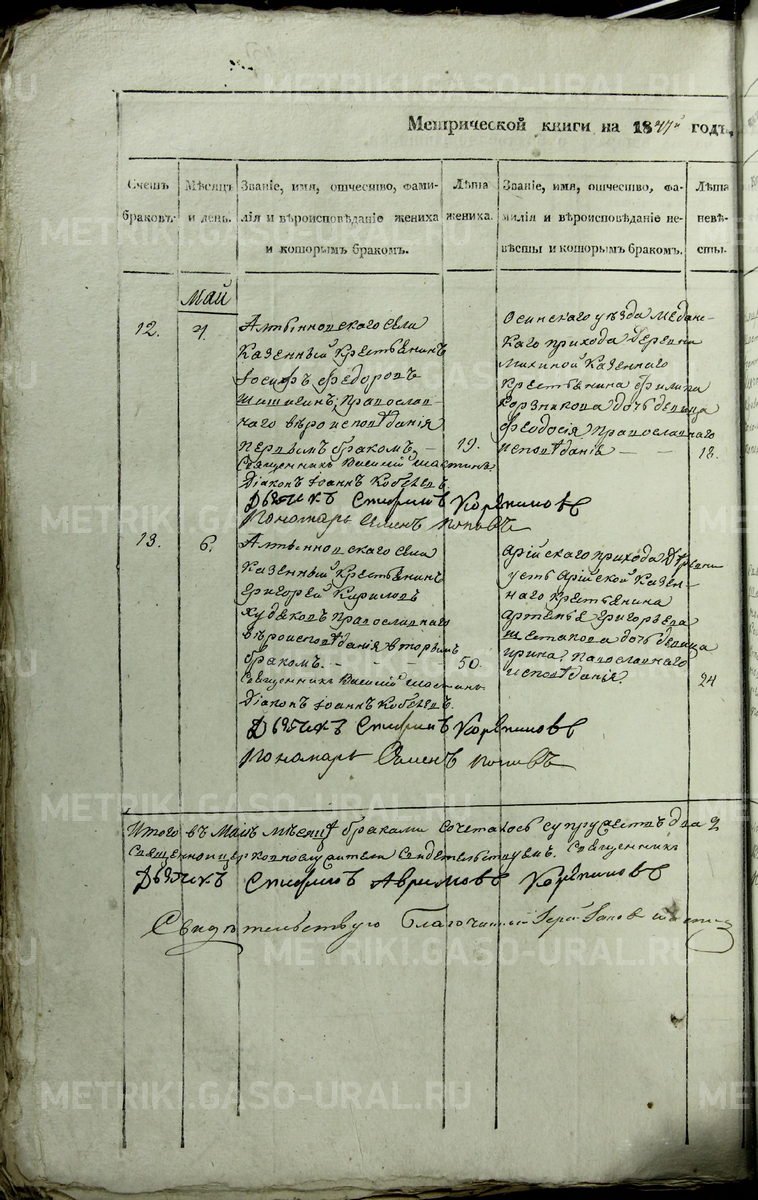 Метрической книги на 1847й годъ,
Счетъ браковъ.
Мѣсяцъ и день.
Званіе, имя, отчество, фами-
лія и вѣроисповѣданіе жениха
и которымъ бракомъ.
Лѣта
жениха.
Званіе, имя, отчество, фа-
милія и вѣроисповѣданіе не-
вѣсты и которымъ бракомъ.
Лѣта
невѣ-
сты.
Май
12.
4.
Алтынновскаго села
Казенный Крестьянинъ
Іосифъ Федоровъ
Православ-
наго вѣроисповѣданія
первымъ бракомъ, — 19.
Священникъ Василій
Діаконъ Іоаннъ
Дьячекъ Стефанъ Корепановъ
Пономарь Семенъ Поповъ
Осинскаго уѣзда Медян-
скаго прихода деревни
Казеннаго
Крестьянина Филипа
дочь девица
Феодосія Православнаго
исповѣданія — — 18.
13.
6.
Алтынновскаго села
Казенный Крестьянинъ
Григорей Кириловъ
Худяковъ Православнаго
вѣроисповѣданія вторымъ
бракомъ. - - - 50.
Священникъ Василій
Діаконъ Іоаннъ
Дьячекъ Стефанъ Корепановъ
Пономарь Семенъ Поповъ
Арійскаго прихода деревни
усть Арійской Казен-
наго Крестьянина
Артемья Григорьева
Шестакова дочь девица
Ирина, Православнаго
исповѣданія. 24
Итого въ Маіѣ мѣсяцѣ браками сочеталось супружествъ два 2
Священноицерковнослужители свидетельствуемъ. Священникъ
Дьячекъ Стефанъ Аврамовъ Корепановъ
Свидѣтельствую Благочинный Іерей
METRIKI.GASO-URAL.RU